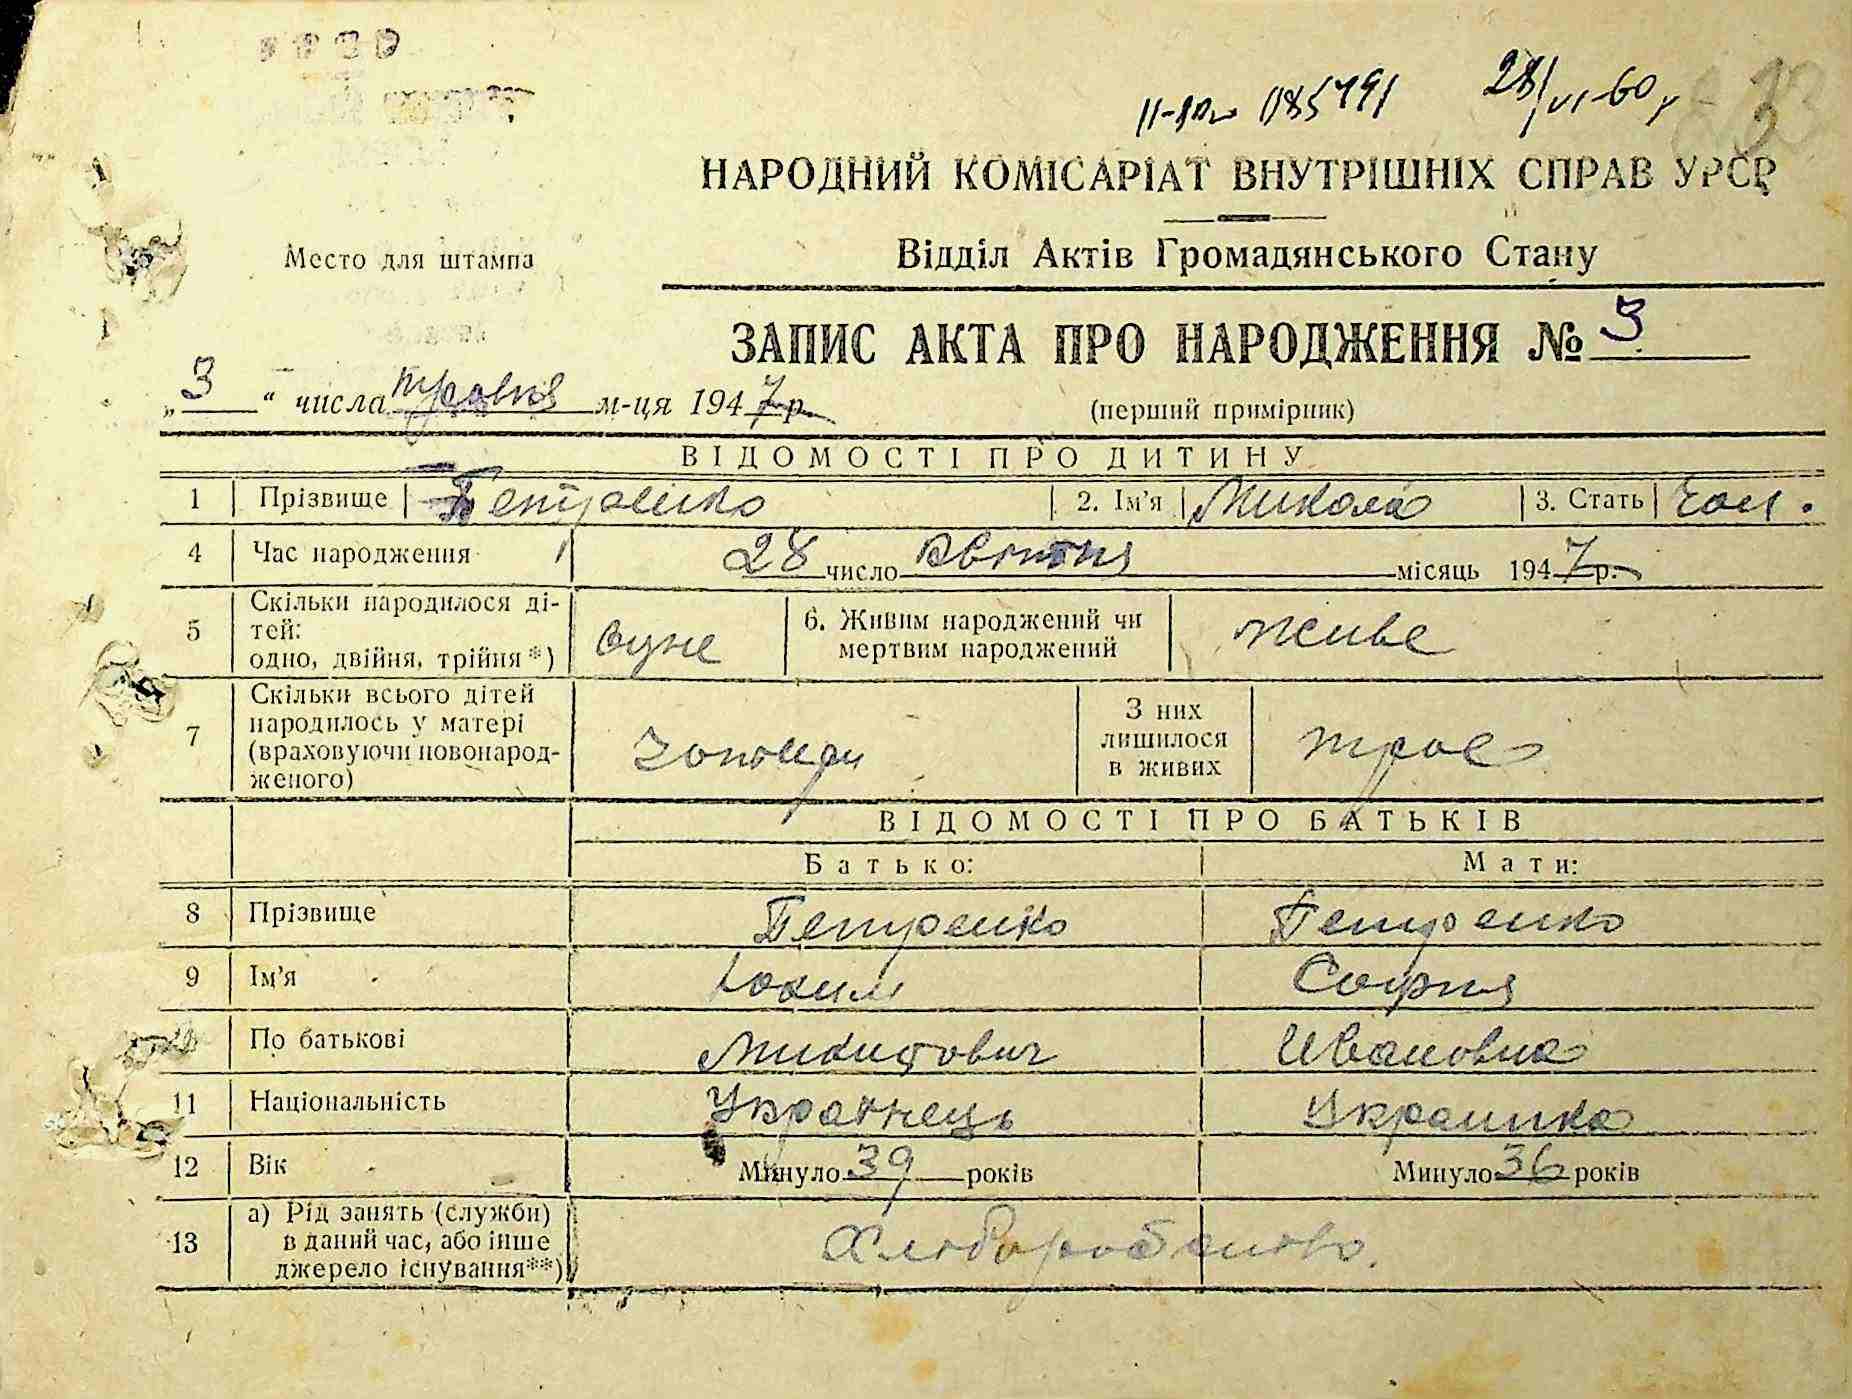 085191 28/VI-60 г
НАРОДНИЙ КОМІСАРІАТ ВНУТРІШНІХ СПРАВ УРСР
Место для штампа
Відділ Актів Громадянського Стану
ЗАПИС АКТА ПРО НАРОДЖЕННЯ № 3
„3“ числа травня м-ця 1947 р.
(перший примірник)
ВІДОМОСТІ ПРО ДИТИНУ
1 Прізвище Петренко 2. Ім'я Микола 3. Стать чол.
4 Час народження 28 число квітня місяць 1947 р.
5 Скільки народилося дітей: одно, двійня, трійня*) одне 6. Живим народжений чи мертвим народжений живе
7 Скільки всього дітей народилось у матері (враховуючи новонародженого) чотири З них лишилося в живих троє
ВІДОМОСТІ ПРО БАТЬКІВ
Батько: Мати:
8 Прізвище Петренко Петренко
9 Ім'я Юхим Софія
По батькові Микитович Ивановна
11 Національність Українець Українка
12 Вік Минуло 39 років Минуло 36 років
13 а) Рід занять (служби) в даний час, або інше джерело існування**) Хліборобство.